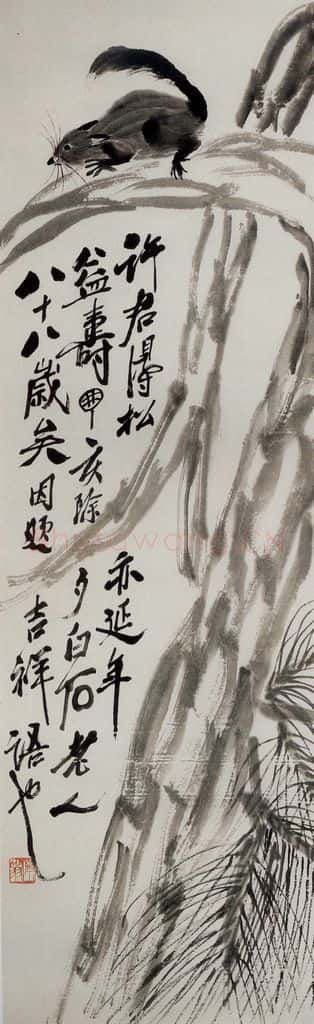 許君得松亦延年
益壽亥除夕白石老人
八十八歲矣因題吉祥語也